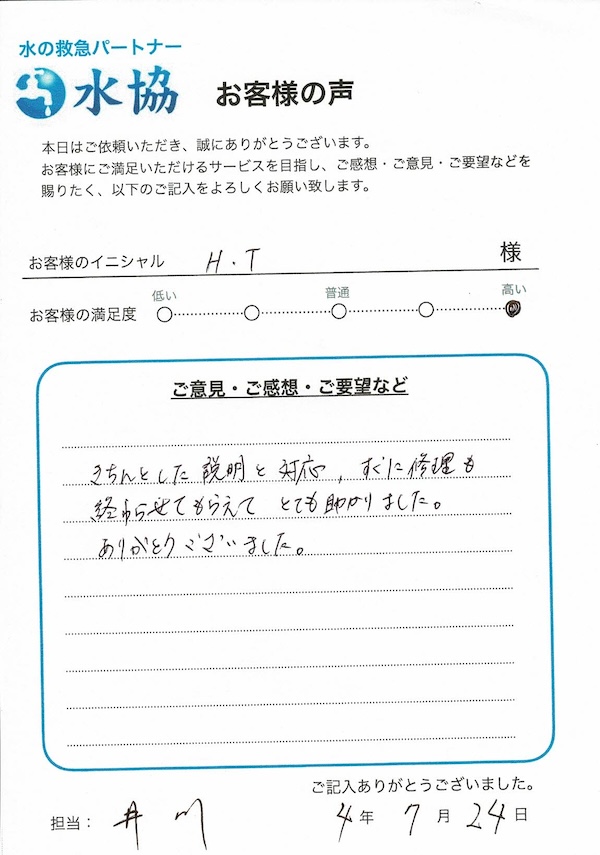 水の救急パートナー
水協 お客様の声
本日はご依頼いただき、誠にありがとうございます。
お客様にご満足いただけるサービスを目指し、ご感想・ご意見・ご要望などを
賜りたく、以下のご記入をよろしくお願い致します。
お客様のイニシャル H.T 様
低い 普通 高い
お客様の満足度
ご意見・ご感想・ご要望など
きちんとした説明と対応、すぐに修理も
終わらせてもらえて とても助かりました。
ありがとうございました。
ご記入ありがとうございました。
担当： 井川 4年 7月 24日